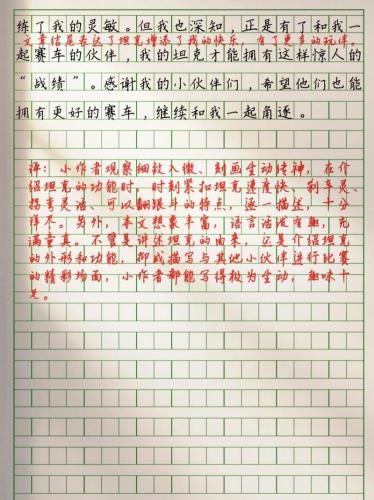 练了我的灵敏。但我也深知，正是有了和我一
文章结尾表达了坦克增添了我的快乐，有了更多的玩伴。
起赛车的伙伴，我的坦克才能拥有这样惊人的
“战绩”。感谢我的小伙伴们，希望他们也能
拥有更好的赛车，继续和我一起角逐。
评：小作者观察细致入微、刻画生动传神，在介
绍坦克的功能时，时刻紧扣坦克速度快、刹车灵、
拐弯灵活、可以翻跟斗的特点，逐一描述，十分
详尽。另外，本文想象丰富，语言活泼有趣，充
满童真。不管是讲述坦克的由来，还是介绍坦克
的外形和功能，抑或描写与其他小伙伴进行比赛
的精彩场面，小作者都能写得极为生动，趣味十
足。